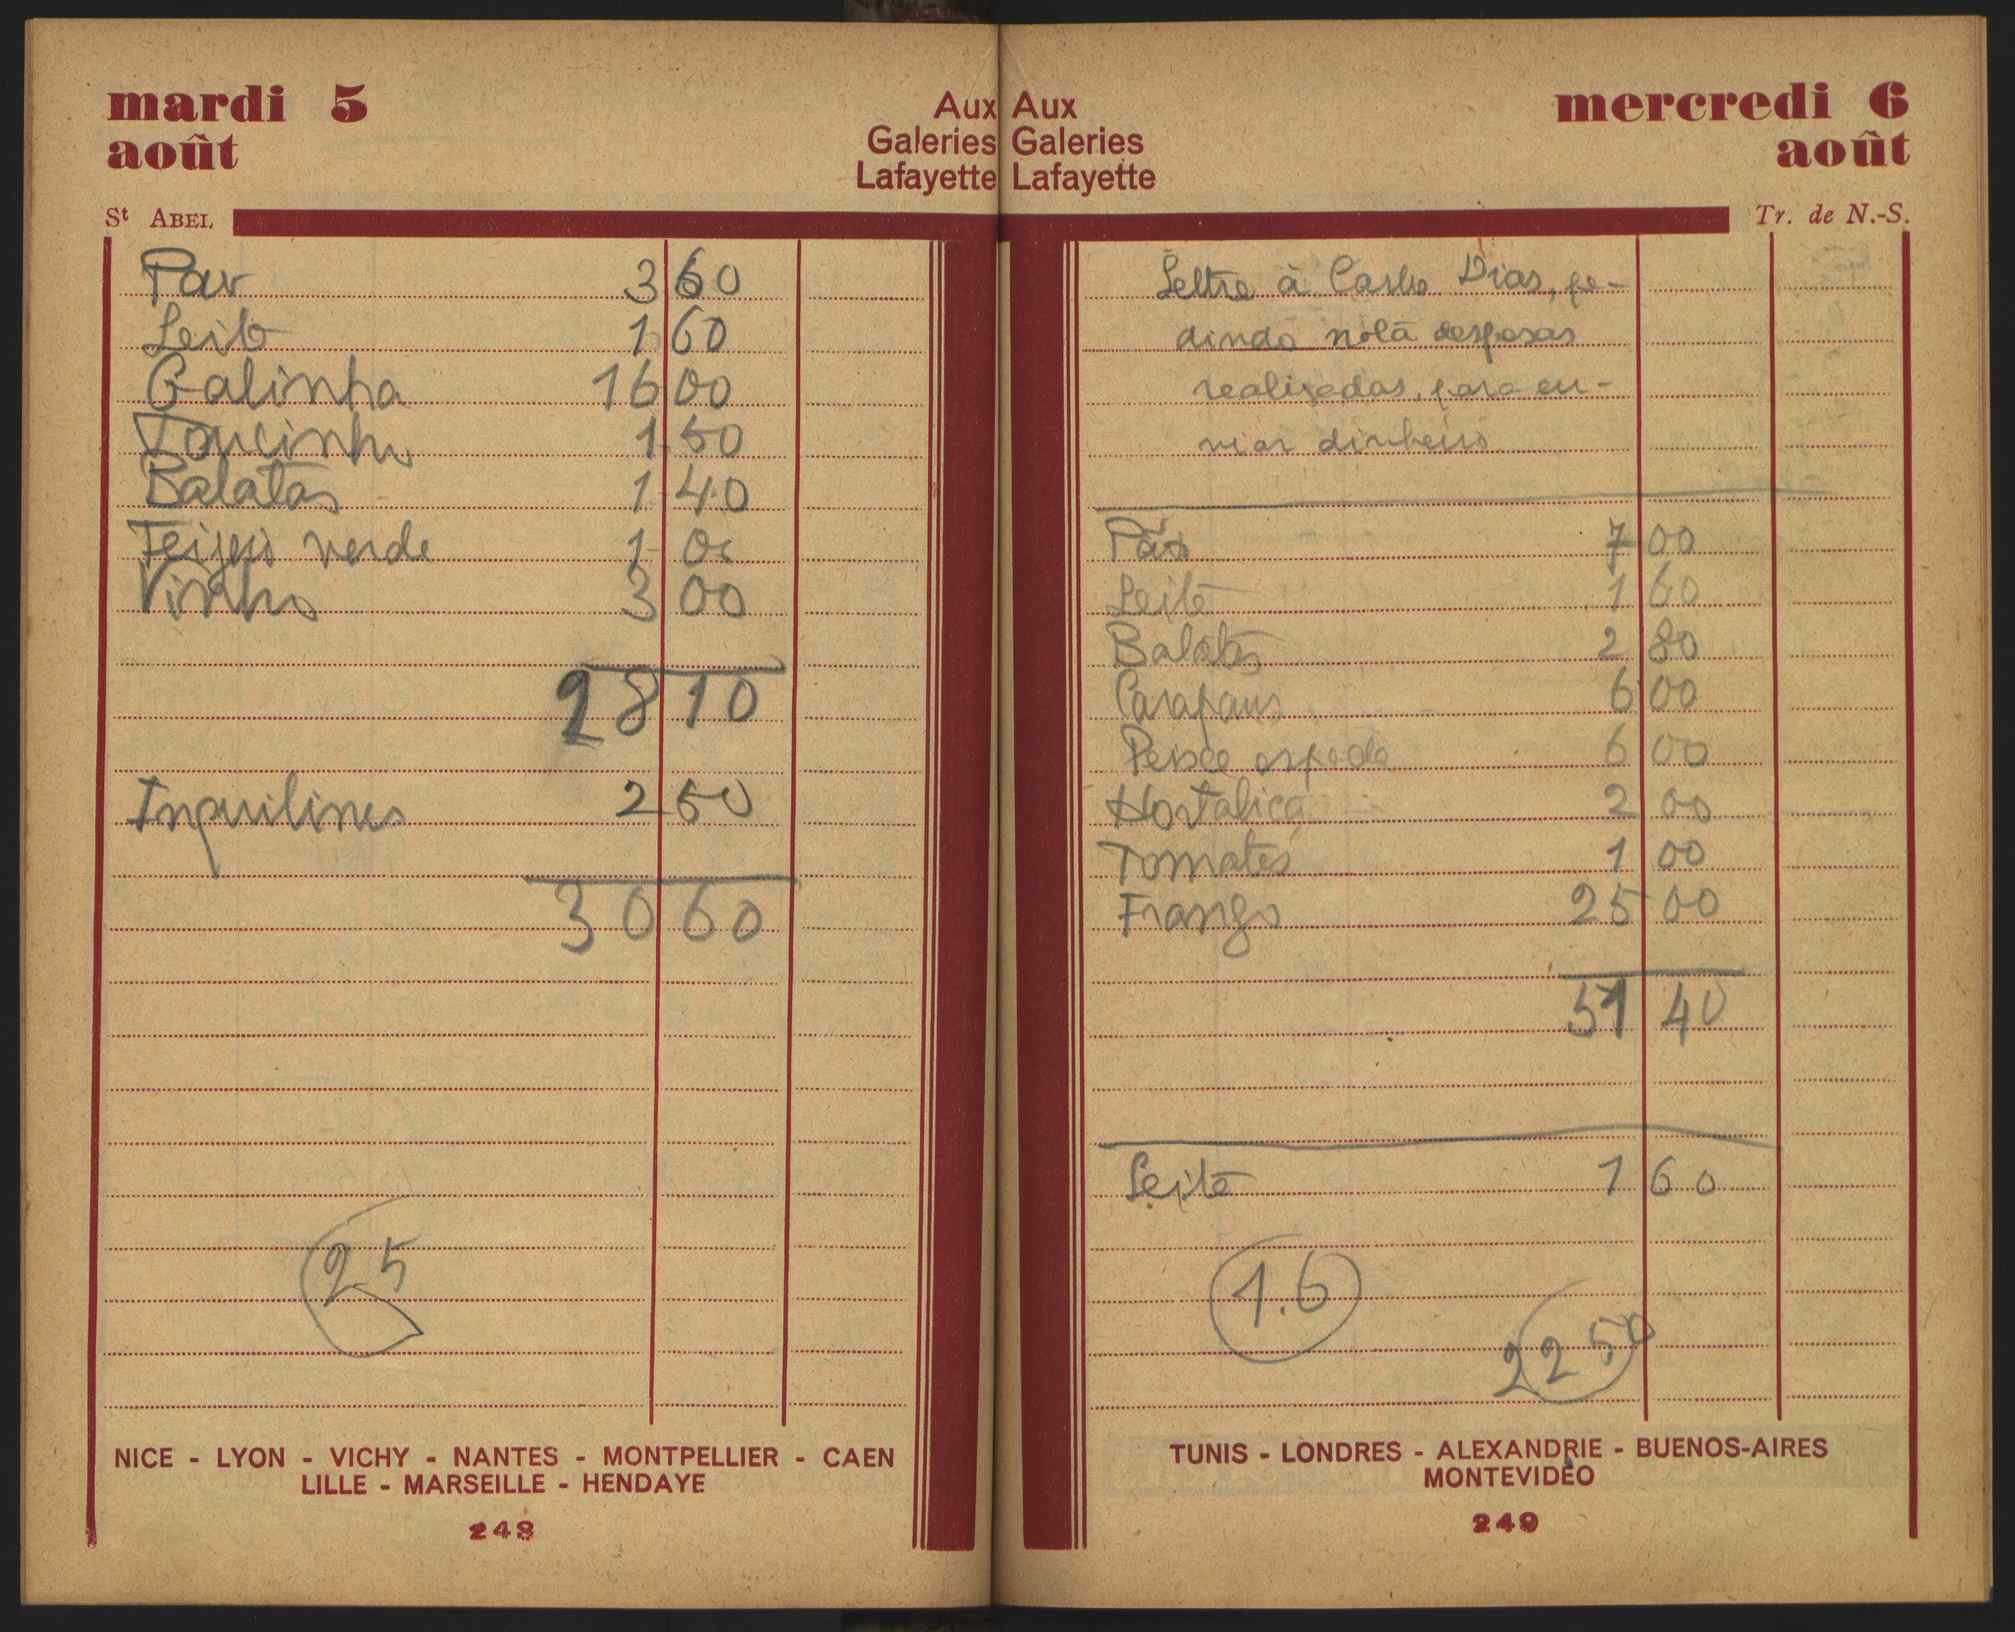 mardi 5
août
Aux
Galeries
Lafayette
St ABEL
Pav 3 60
Leite 1 60
Galinha 16 00
Toucinho 1 50
Batatas 1 40
Feijão verde 1 00
Vinho 3 00
28 10
Inquilinos 2 50
30 60
25
NICE - LYON - VICHY - NANTES - MONTPELLIER - CAEN
LILLE - MARSEILLE - HENDAYE
248
Aux
Galeries
Lafayette
mercredi 6
août
Tr. de N.-S.
Lettre à Dias, pe-
dindo nota despesas
realizadas, para en-
viar dinheiro
Pão 7 00
Leite 1 60
Batatas 2 80
Carapaus 6 00
Peixe espada 6 00
Hortaliça 2 00
Tomates 1 00
Frango 25 00
51 40
Leite 1 60
1.6
22 50
TUNIS - LONDRES - ALEXANDRIE - BUENOS-AIRES
MONTEVIDEO
249